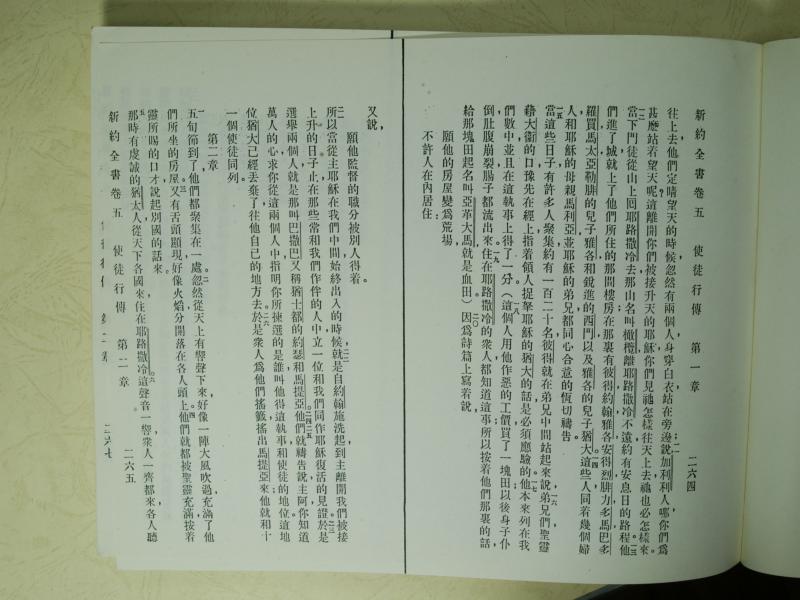 新約全書卷五　使徒行傳　第一章　二六四
往上去他們定睛望天的時候忽然有兩個人身穿白衣站在旁邊說加利利人哪你們爲
甚麽站着望天呢這離開你們被接升天的耶穌你們見祂怎樣往天上去祂也必怎樣來
當下門徒從山上囘耶路撒冷去那山名叫橄欖離耶路撒冷不遠約有安息日的路程他
們進了城就上了他們所住的那間樓房在那裏有彼得約翰雅各安得烈腓力多馬巴多
羅買馬太亞勒腓的兒子雅各和銳進的西門以及雅各的兒子猶大這些人同着幾個婦
人和耶穌的母親馬利亞並耶穌的弟兄都同心合意的恆切禱告
當這些日子有許多人聚集約有一百二十名彼得就在弟兄中間站起來說弟兄們聖靈
藉大衛的口豫先在經上指着領人捉拏耶穌的猶大的話是必須應驗的他本來列在我
們數中並且在這執事上得了一分（這個人用他作惡的工價買了一塊田以後身子仆
倒肚腹崩裂腸子都流出來住在耶路撒冷的衆人都知道這事所以按着他們那裏的話
給那塊田起名叫亞革大馬就是血田）因爲詩篇上寫着說
願他的房屋變爲荒場
不許人在內居住：
又說，
願他監督的職分被別人得着
所以當從主耶穌在我們中間始終出入的時候就是自約翰施洗起到主離開我們被接
上升的日子止在那些常和我們作伴的人中立一位和我們同作耶穌復活的見證於是
選舉兩個人就是那叫巴撒巴又稱猶士都的約瑟和馬提亞他們就禱告說主阿你知道
萬人的心求你從這兩個人中指明你所揀選的是誰叫他得這執事和使徒的地位這地
位猶大已經丟棄了往他自己的地方去於是衆人爲他們搖籤搖出馬提亞來他就和十
一個使徒同列
第二章
五旬節到了他們都聚集在一處忽然從天上有響聲下來好像一陣大風吹過充滿了他
們所坐的房屋又有舌頭顯現好像火焰分開落在各人頭上他們就都被聖靈充滿按着
靈所賜的口才說起別國的話來
那時有虔誠的猶太人從天下各國來住在耶路撒冷這聲音一響衆人一齊都來各人聽
新約全書卷五　使徒行傳　第二章　二六五
二六七